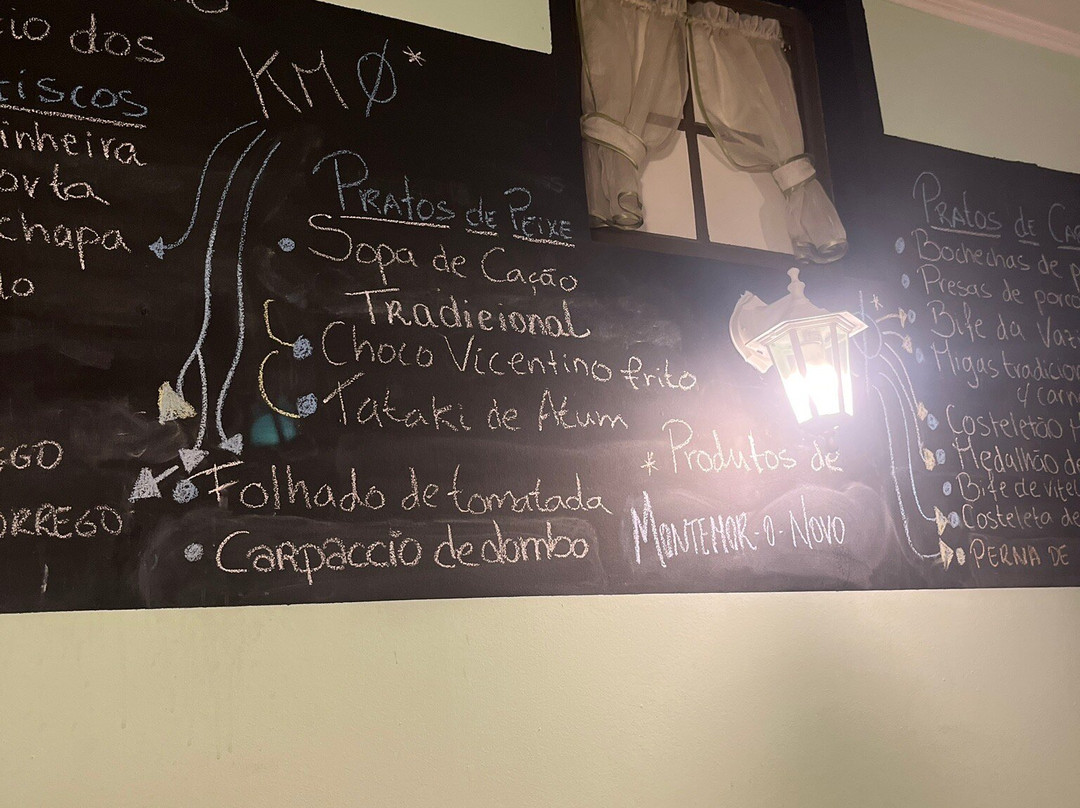 cio dos
tiscos
inheira
orta
chapa
do
EGO
ORREGO
KM Ø*
PRATOS DE PEIXE
Sopa de Cação
Tradicional
Choco Vicentino frito
Tataki de Atum
Folhado de tomatada
Carpaccio de lombo
* Produtos de
MONTEMOR-O-NOVO
PRATOS DE CA
Bochechas de p
Presas de porco
Bife da Vazi
Migas tradicion
c/ carn
Costeletão
Medalhão de
Bife de vitel
Costeleta de
PERNA DE